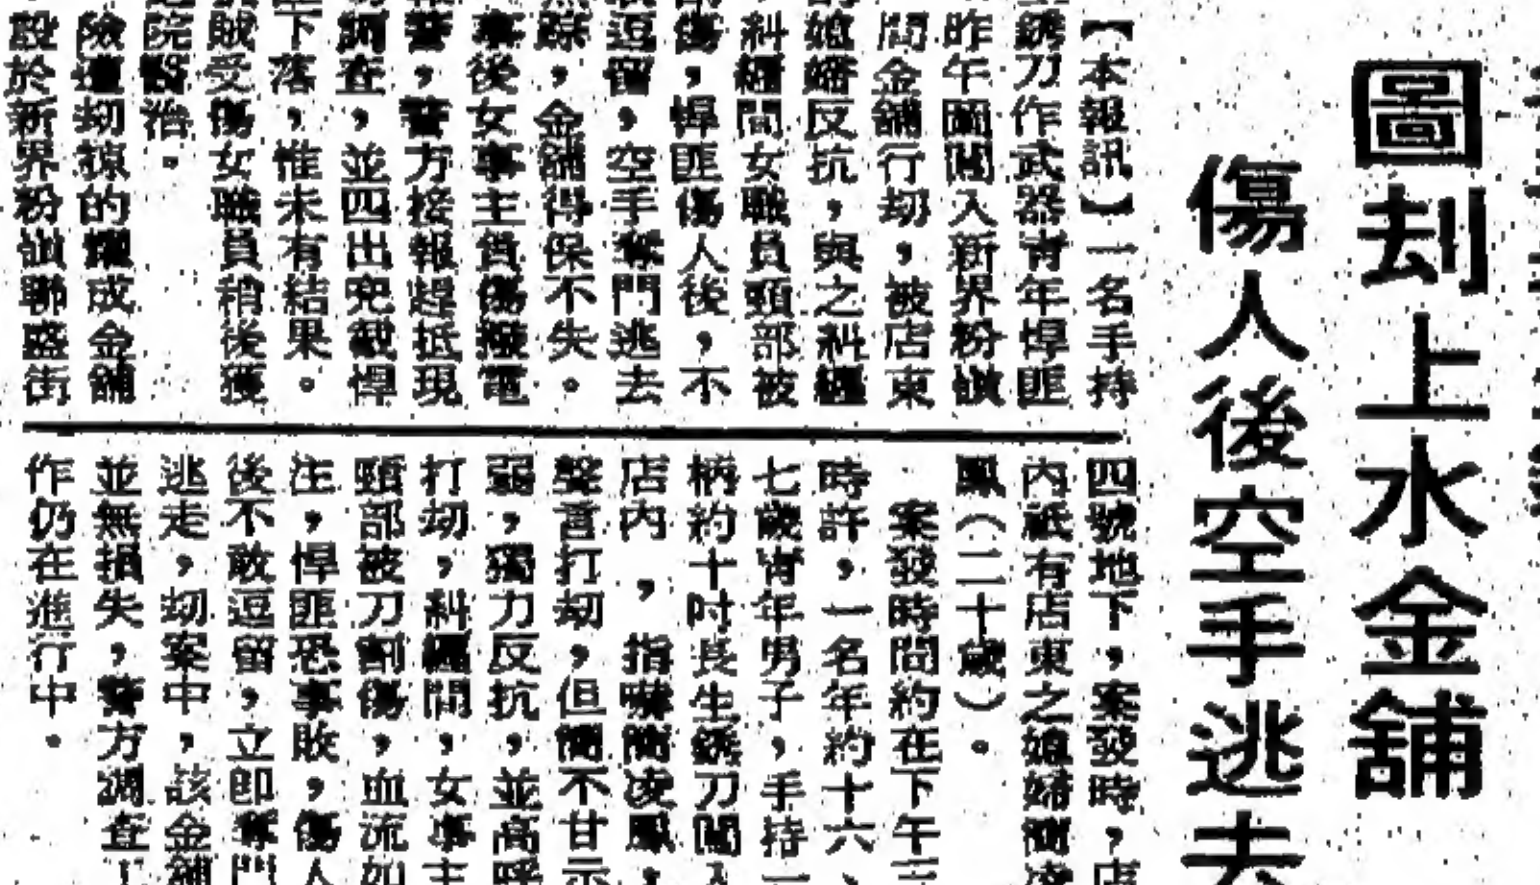 圖刦上水金舖
傷人後空手逃去
【本報訊】一名手持
銹刀作武器青年悍匪
昨午圖闖入新界粉嶺
間金舖行刧，被店東
媳婦反抗，與之糾纏
糾纏間女職員頸部被
傷，悍匪傷人後，不
逗留，空手奪門逃去
踪，金舖得保不失。
事後女事主負傷撥電
警，警方接報趕抵現
調查，並四出兜截悍
下落，惟未有結果。
賊受傷女職員稍後獲
院醫治。
險遭刧掠的 成金舖
設於新界粉嶺聯盛街
四號地下，案發時，店
內祇有店東之媳婦簡凌
鳳（二十歲）。
案發時間約在下午三
時許，一名年約十六、
七歲青年男子，手持一
柄約十吋長生銹刀闖入
店內，指嚇簡凌鳳，
聲言打刧，但簡不甘示
弱，獨力反抗，並高呼
打刧，糾纏間，女事主
頸部被刀割傷，血流如
注，悍匪恐事敗，傷人
後不敢逗留，立卽奪門
逃走，刧案中，該金舖
並無損失，警方調查工
作仍在進行中。